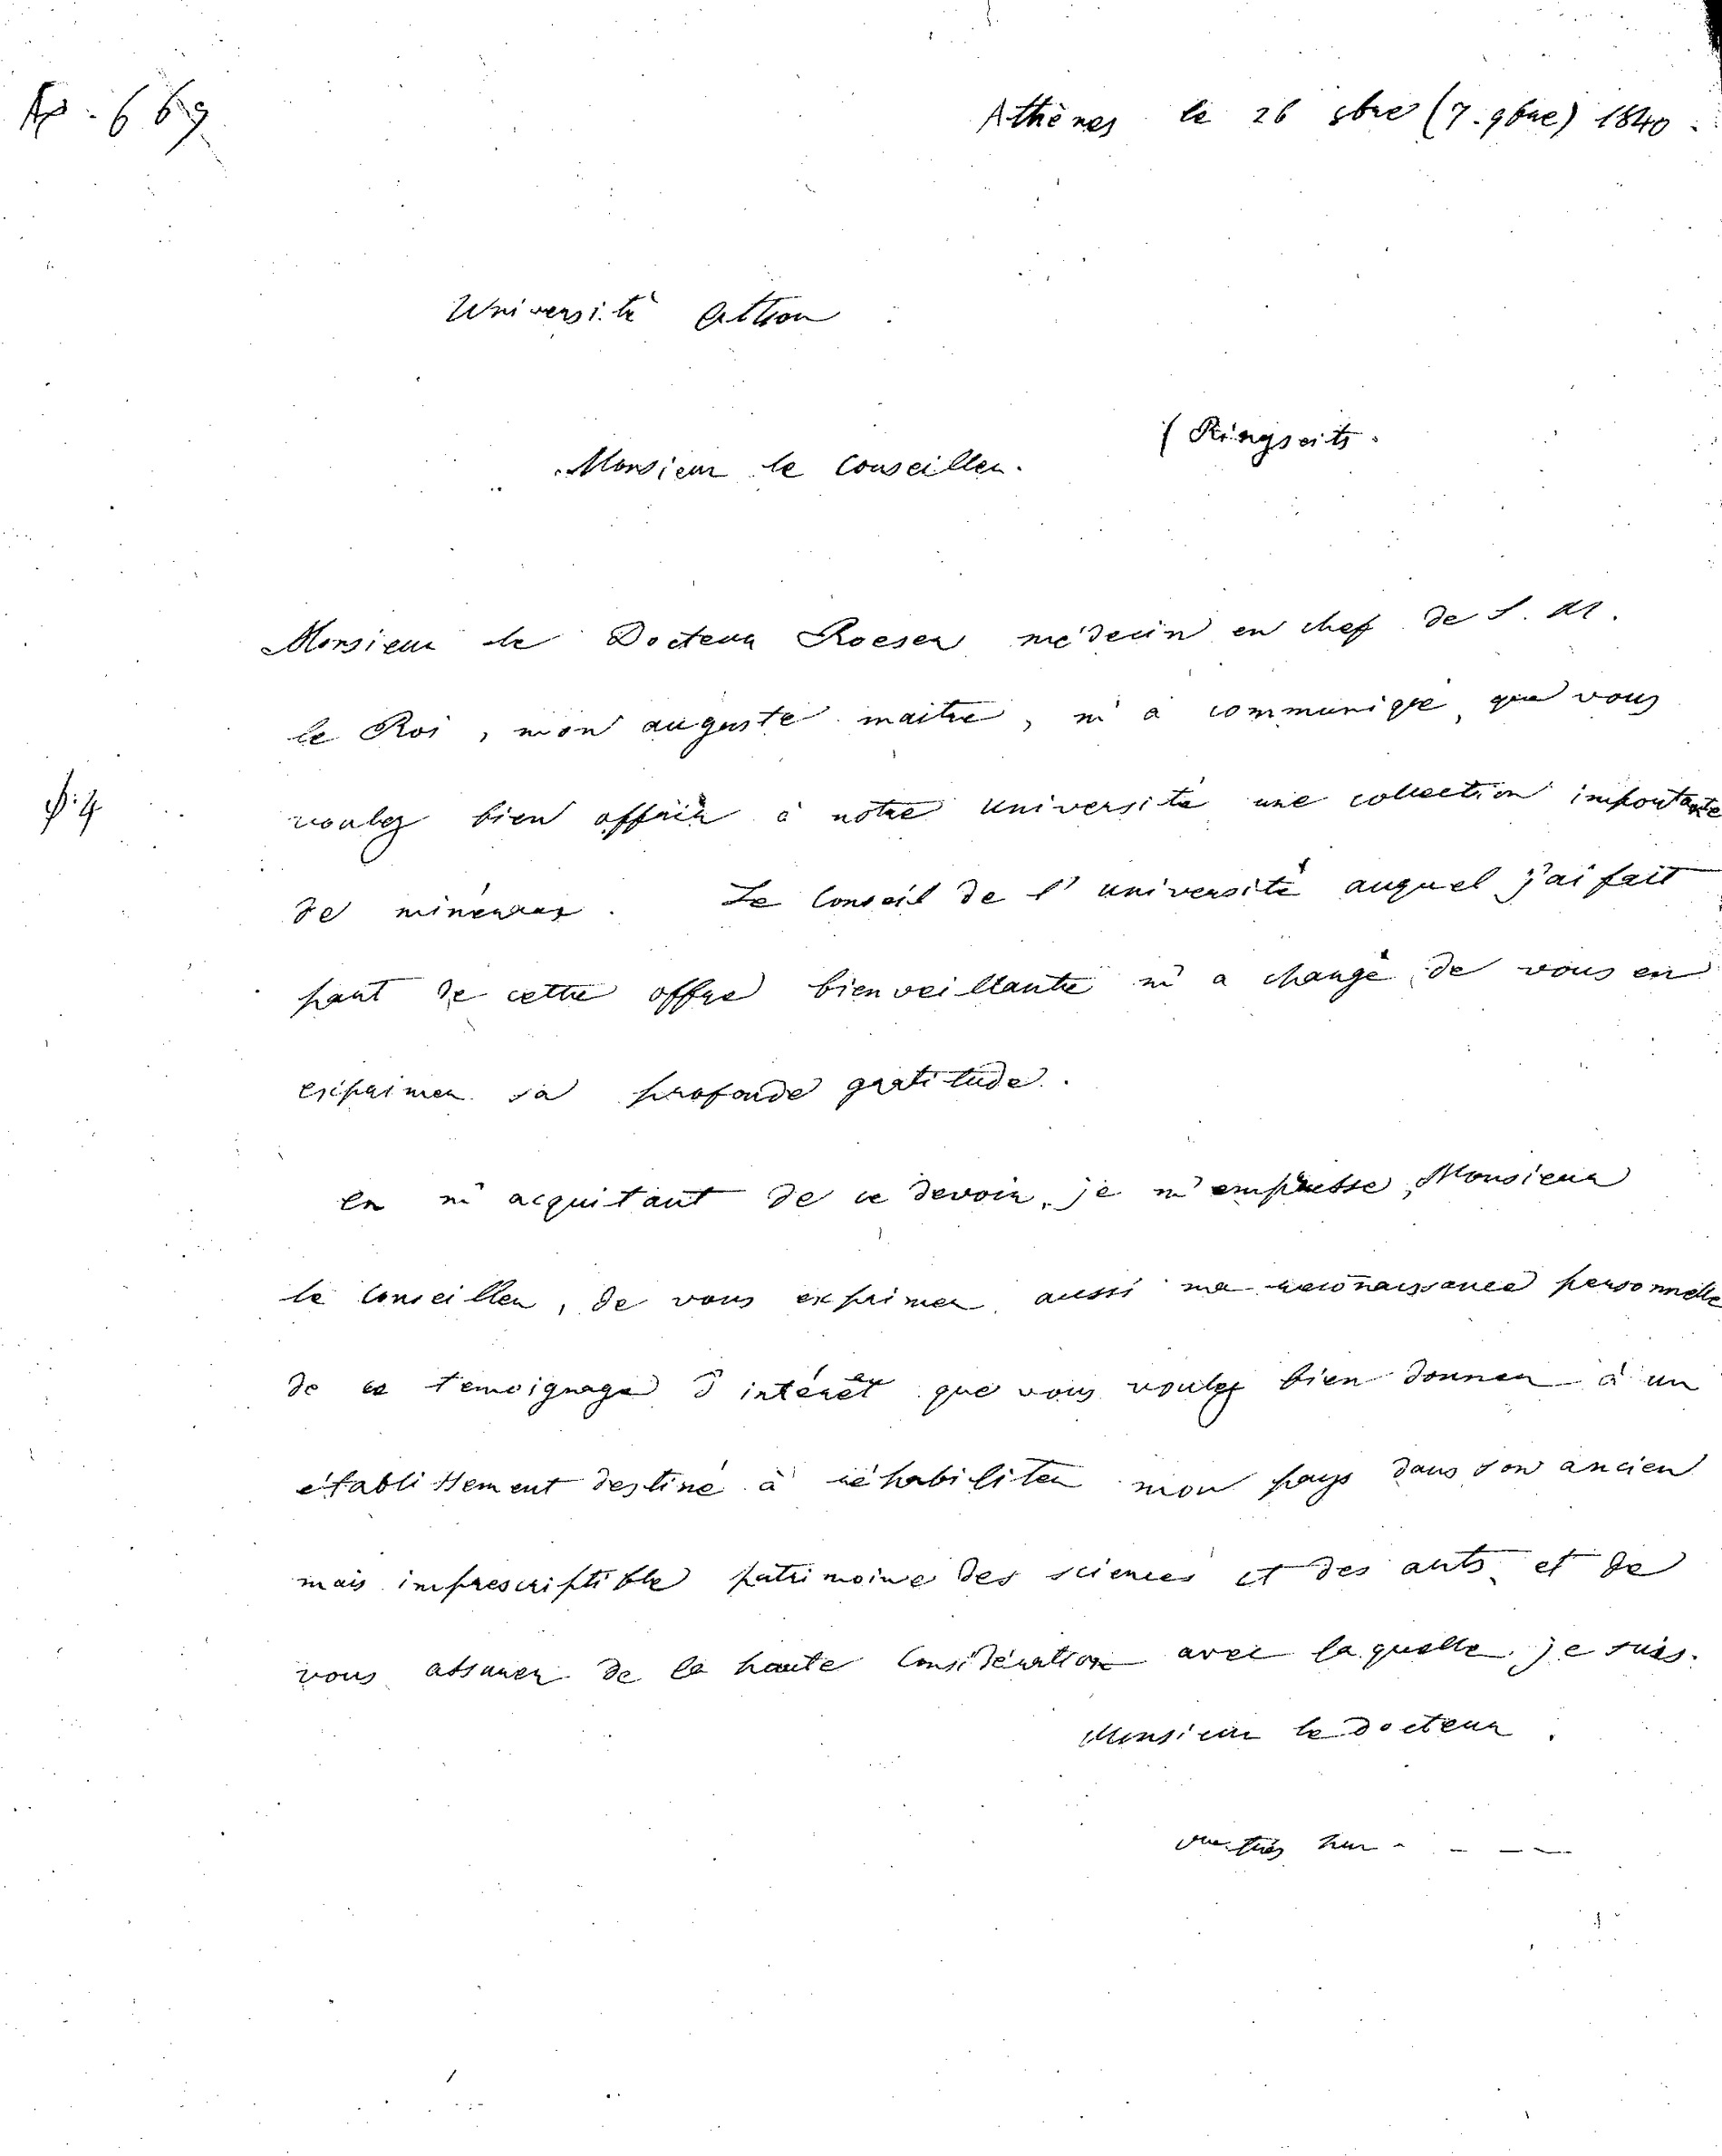 Ap. 669
Athènes le 26 8bre (7. 9bre) 1840.
Université Othon
(Ringseits.
Monsieur le Conseiller.
Monsieur le Docteur Roeser médecin en chef de S. M.
le Roi, mon auguste maitre, m'a communiqé que vous
voulez bien offrir à notre université une collection importante
de minéraux. Le Conseil de l'université auquel j'ai fait
part de cette offre bienveillante m'a chargé de vous en
exprimer sa profonde gratitude.
en m'acquitant de ce devoir, je m'empresse, Monsieur
le Conseiller, de vous exprimer aussi ma reconaissance personnelle
de ce temoignage d'intérêt que vous voulez bien donner à un
établissement destiné à réhabiliter mon pays dans son ancien
mais imprescriptible patrimoine des sciences et des arts, et de
vous assurer de la haute Considération avec laquelle je suis.
Monsieur le docteur.
votre très hum - - - -